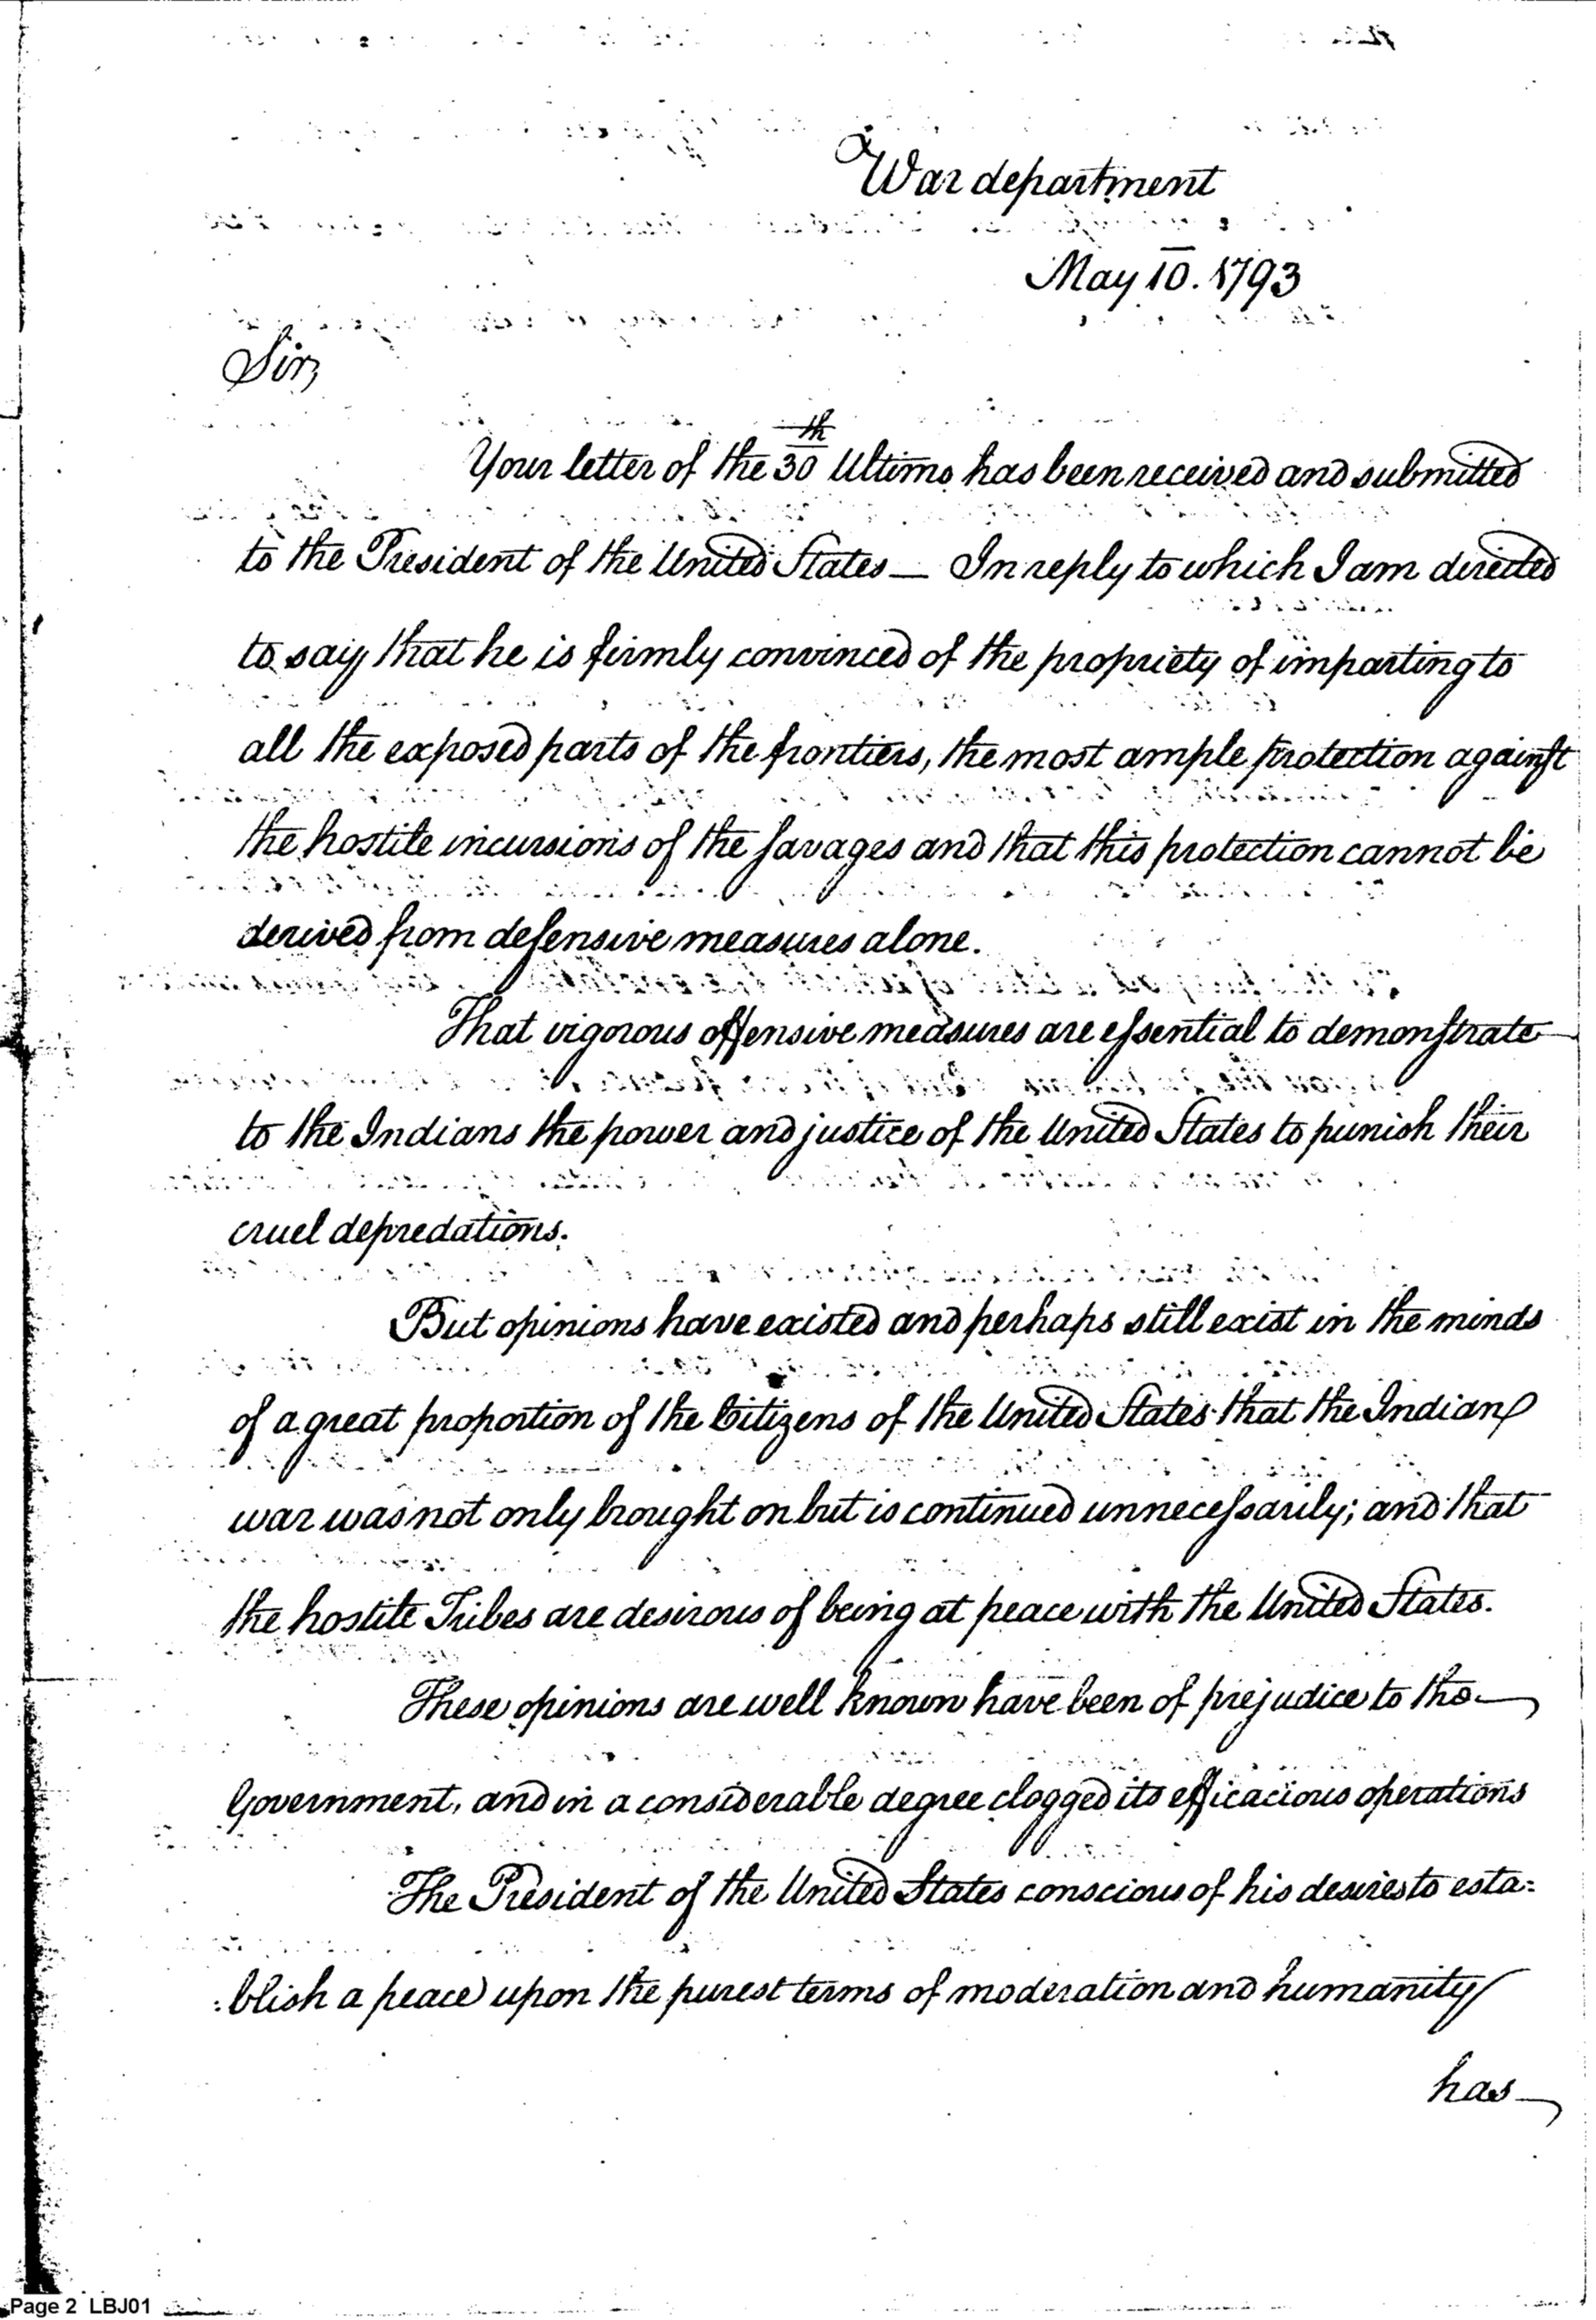 War department
May 10. 1793
Sir,
Your letter of the 30th Ultimo has been received and submitted
to the President of the United States — In reply to which I am directed
to say, that he is firmly convinced of the propriety of imparting to
all the exposed parts of the frontiers, the most ample protection against
the hostile incursions of the Savages and that this protection cannot be
derived from defensive measures alone.
That vigorous offensive measures are essential to demonstrate
to the Indians the power and justice of the United States to punish their
cruel depredations.
But opinions have existed and perhaps still exist in the minds
of a great proportion of the Citizens of the United States that the Indian
war was not only brought on but is continued unnecessarily; and that
the hostile Tribes are desirous of being at peace with the United States.
These opinions are well known have been of prejudice to the
Government, and in a considerable degree clogged its efficacious operations
The President of the United States conscious of his desires to esta=
=blish a peace upon the purest terms of moderation and humanity
has
Page 2 LBJ01